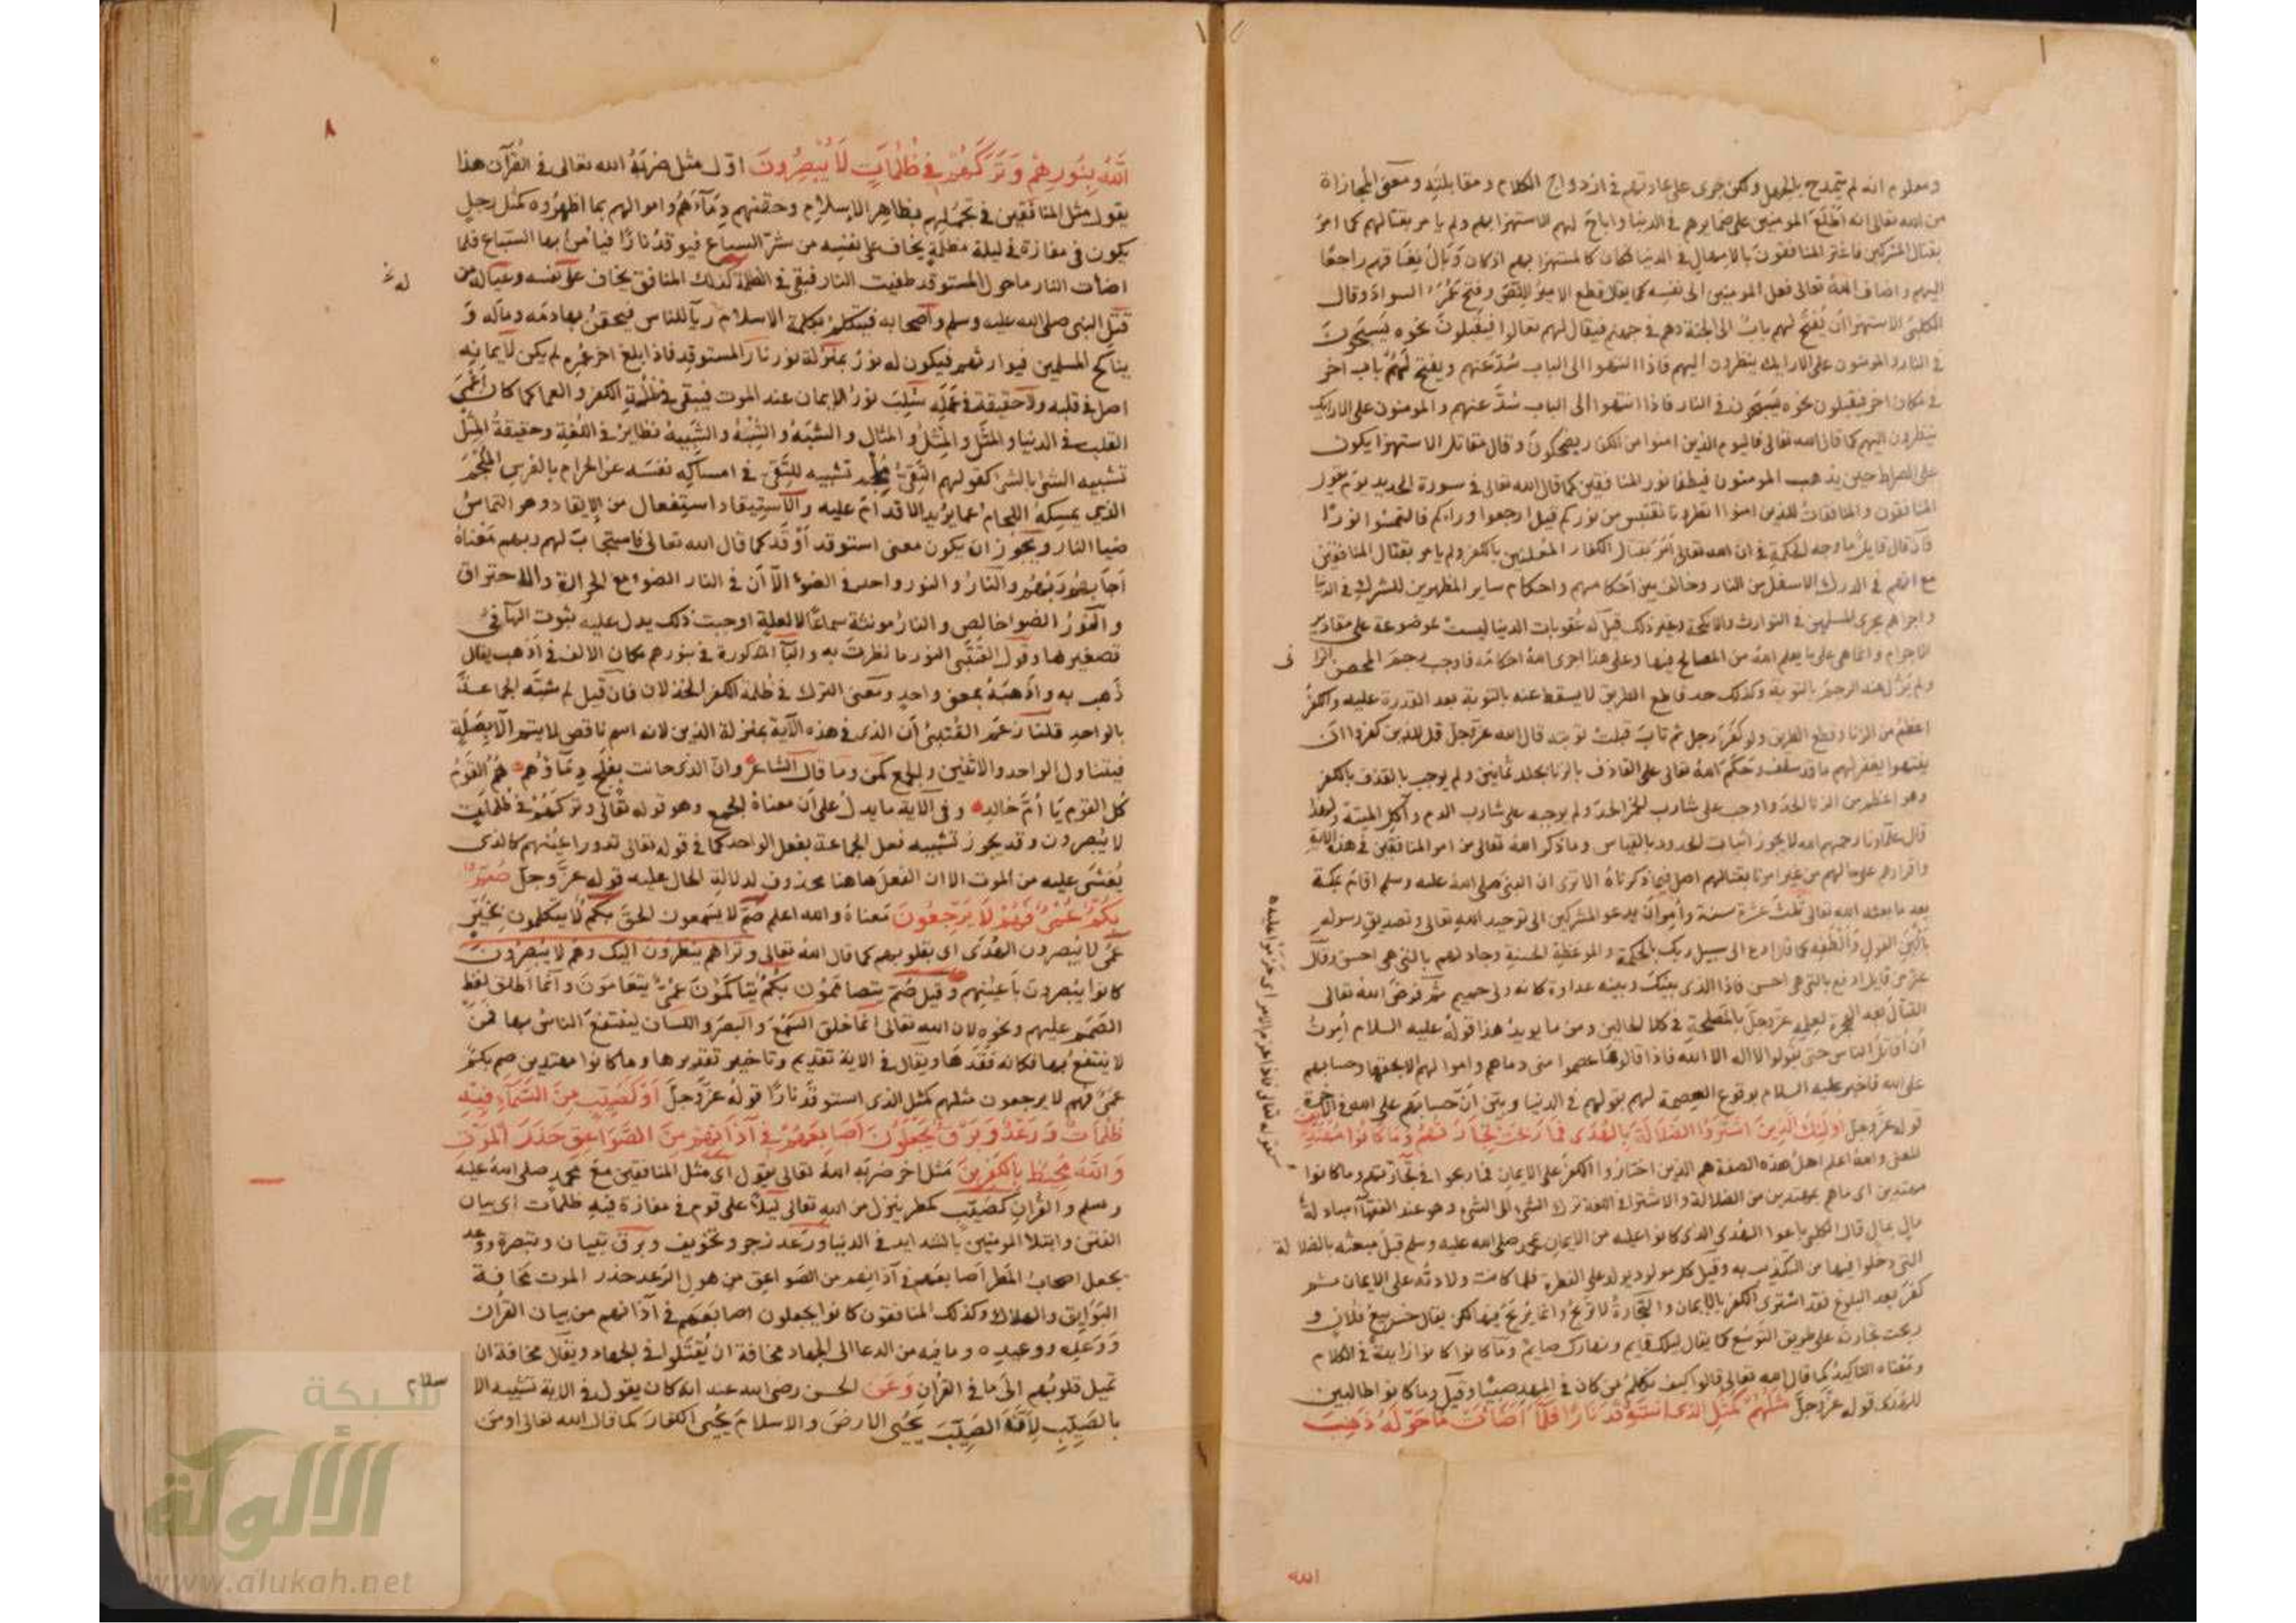 ومعلوم انه لم يتمدح بالجهل ولكن جرى على عادتهم في ازدواج الكلام ومقابلته ومعنى المجازاة
من الله تعالى انه اطلع المومنين على ضمايرهم في الدنيا واباح لهم الاستهزا بهم ولم يامر بقتالهم كما امر
بقتال المشركين فاغتر المنافقون بالامهال في الدنيا فكان كالمستهزا بهم اذ كان وبال نفاقهم راجعا
اليهم واضاف الله تعالى فعل المومنين الى نفسه كما يقال قطع الامير اللص وفتح عمر السواد وقال
الكلبى الاستهزا ان يفتح لهم باب الى الجنة وهم في جهنم فيقال لهم تعالوا فيقبلون نحوه يسبحون
في النار والمومنون على الارايك ينظرون اليهم فاذا انتهوا الى الباب سد عنهم ويفتح لهم باب اخر
في مكان اخر فيقبلون نحوه يسبحون في النار فاذا انتهوا الى الباب سد عنهم والمومنون على الارايك
ينظرون اليهم كما قال الله تعالى فاليوم الذين امنوا من الكفار يضحكون وقال مقاتل الاستهزا يكون
على الصراط حين يذهب المومنون فيطفا نور المنافقين كما قال الله تعالى في سورة الحديد يوم يقول
المنافقون والمنافقات للذين امنوا انظرونا نقتبس من نوركم قيل ارجعوا وراءكم فالتمسوا نورا
فان قال قايل ما وجه الحكمة في ان الله تعالى امر بقتال الكفار المعلنين بالكفر ولم يامر بقتال المنافقين
مع انهم في الدرك الاسفل من النار وخالف بين احكامهم واحكام ساير المظهرين للشرك في الدنيا
واجراهم مجرى المسلمين في التوارث والانكحة وغير ذلك قيل له عقوبات الدنيا ليست موضوعة على مقادير
الاجرام وانما هي على ما يعلم الله من المصالح فيها وعلى هذا اجرى الله احكامه فاوجب رجم المحصن الزا
نى
ولم يزل عنه الرجم بالتوبة وكذلك حد قاطع الطريق لا يسقط عنه بالتوبة بعد القدرة عليه والكفر
اعظم من الزنا وقطع الطريق ولو كفر رجل ثم تاب قبلت توبته قال الله عز وجل قل للذين كفروا ان
ينتهوا يغفر لهم ما قد سلف وحكم الله تعالى على القاذف بالزنا بجلد ثمانين ولم يوجب بالقذف بالكفر
وهو اعظم من الزنا الحد واوجب على شارب الخمر الحد ولم يوجبه على شارب الدم وآكل الميتة ولهذا
قال علماؤنا رحمهم الله لا يجوز اثبات الحدود بالقياس وما ذكر الله تعالى من امر المنافقين في هذه الاية
واقرارهم على حالهم من غير امرنا بقتالهم اصل فيما ذكرناه الا ترى ان النبي صلى الله عليه وسلم اقام بمكة
بعد ما بعثه الله تعالى ثلث عشرة سنة وامر ان يدعو المشركين الى توحيد الله تعالى وتصديق رسوله
بالين القول والطفه كما قال ادع الى سبيل ربك بالحكمة والموعظة الحسنة وجادلهم بالتي هي احسن وقال
عز من قايل ادفع بالتي هي احسن فاذا الذي بينك وبينه عداوة كانه ولى حميم ثم فرض الله تعالى
القتال بعد الهجرة لعلمه عز وجل بالمصلحة في كلا الحالين ومن ما يويد هذا قوله عليه السلام امرت
ان اقاتل الناس حتى يقولوا لا اله الا الله فاذا قالوها عصموا منى دماءهم واموالهم الا بحقها وحسابهم
على الله فاخبر عليه السلام بوقوع العصمة لهم بقولهم في الدنيا وبين ان حسابهم على الله في الاخرة
قوله عز وجل اوليك الذين اشتروا الضلالة بالهدى فما ربحت تجارتهم وما كانوا مهتدين
المعنى والله اعلم اهل هذه الصفة هم الذين اختاروا الكفر على الايمان فما ربحوا في تجارتهم وما كانوا
مهتدين اى ما هم بمهتدين من الضلالة والاشتراء في اللغة ترك الشى الى الشى وهو عند الفقهاء مبادلة
مال بمال قال الكلبى باعوا الهدى الذى كانوا عليه من الايمان بمحمد صلى الله عليه وسلم قبل مبعثه بالضلالة
التى دخلوا فيها من التكذيب به وقيل كل مولود يولد على الفطرة فلما كانت ولادته على الايمان ثم
كفر بعد البلوغ فقد اشترى الكفر بالايمان والتجارة لا تربح وانما يربح فيها لكن يقال خسر بيع فلان و
ربحت تجارته على طريق التوسع كما يقال ليلك قايم ونهارك صايم وما كانوا كانوا زايدة في الكلام
ومعناه التاكيد كما قال الله تعالى قالوا كيف نكلم من كان في المهد صبيا وقيل وما كانوا طالبين
للهدى قوله عز وجل مثلهم كمثل الذى استوقد نارا فلما اضاءت ما حوله ذهب
الله
٨
الله بنورهم وتركهم في ظلمات لا يبصرون اول مثل ضربه الله تعالى في القرآن هذا
يقول مثل المنافقين في تجملهم بظاهر الاسلام وحقنهم دماءهم واموالهم بما اظهروه كمثل رجل
يكون في مفازة في ليلة مظلمة يخاف على نفسه من شر السباع فيوقد نارا فيامن بها السباع فلما
اضات النار ما حول المستوقد طفيت النار فبقى في الظلمة كذلك المنافق يخاف على نفسه وعياله من
قتل النبى صلى الله عليه وسلم واصحابه فيتكلم بكلمة الاسلام رياء للناس فيحقن بها دمه وماله و
يناكح المسلمين فيوارثهم فيكون له نور بمنزلة نور نار المستوقد فاذا بلغ اخر عمره لم يكن لايمانه
اصل في قلبه ولا حقيقة في عمله سلب نور الايمان عند الموت فيبقى في ظلمة الكفر والعما كما كان اعمى
القلب في الدنيا والمثل والمثل والمثال والشبه والشبه والشبيه نظاير في اللغة وحقيقة المثل
تشبيه الشى بالشى كقولهم التقى ملجم تشبيه للتقى في امساكه نفسه عن الحرام بالفرس الملجم
الذى يمسكه اللجام عما يريد الاقدام عليه والاستيقاد استفعال من الايقاد وهو التماس
ضيا النار ويجوز ان يكون معنى استوقد اوقد كما قال الله تعالى فاستجاب لهم ربهم معناه
اجابهم ربهم والنار والنور واحد في الضوء الا ان في النار الضوء مع الحرارة والاحتراق
والنور الضوا خالص والنار مونثة سماعا لا لعلة اوجبت ذلك يدل عليه ثبوت الهآ في
تصغيرها وقول القتبى النور ما نظرت به والبآ المذكورة في بنورهم مكان الالف في اذهب يقال
ذهب به واذهبه بمعنى واحد ومعنى الترك في ظلمة الكفر الخذلان فان قيل لم شبه الجماعة
بالواحد قلنا زعم القتبى ان الذى في هذه الآية بمنزلة الذين لانه اسم ناقص لا يتم الا بصلة
فيتناول الواحد والاثنين والجمع كمن وما قال الشاعر وان الذى حانت بفلج دماؤهم هم القوم
كل القوم يا ام خالد وفي الآية ما يدل على ان معناه الجمع وهو قوله تعالى وتركهم في ظلمات
لا يبصرون وقد يجوز تشبيه فعل الجماعة بفعل الواحد كما في قوله تعالى تدور اعينهم كالذى
يغشى عليه من الموت الا ان الفعل هاهنا محذوف لدلالة الحال عليه قوله عز وجل صم
بكم عمى فهم لا يرجعون معناه والله اعلم صم لا يسمعون الحق بكم لا يتكلمون بخير
عمى لا يبصرون الهدى اى بقلوبهم كما قال الله تعالى وتراهم ينظرون اليك وهم لا يبصرون
كانوا يبصرون باعينهم وقيل صم يتصاممون بكم يتباكمون عمى يتعامون وانما اطلق لفظ
الصمم عليهم ونحوه لان الله تعالى انما خلق السمع والبصر واللسان لينتفع الناس بها فمن
لا ينتفع بها فكانه فقدها ويقال في الاية تقديم وتاخير تقديرها وما كانوا مهتدين صم بكم
عمى فهم لا يرجعون مثلهم كمثل الذى استوقد نارا قوله عز وجل او كصيب من السماء فيه
ظلمات ورعد وبرق يجعلون اصابعهم في آذانهم من الصواعق حذر الموت
والله محيط بالكفرين مثل اخر ضربه الله تعالى يقول اى مثل المنافقين مع محمد صلى الله عليه
وسلم والقران كصيب كمطر ينزل من الله تعالى ليلا على قوم في مفازة فيه ظلمات اى بيان
الفتن وابتلا المومنين بالشدايد في الدنيا ورعد زجر وتخويف وبرق تبيان وتبصرة ووعد
يجعل اصحاب المطر اصابعهم في آذانهم من الصواعق من هول الرعد حذر الموت مخافة
البوايق والهلاك وكذلك المنافقون كانوا يجعلون اصابعهم في آذانهم من بيان القران
ووعده ووعيده وما فيه من الدعا الى الجهاد مخافة ان يقتلوا في الجهاد ويقال مخافة ان
تميل قلوبهم الى ما في القران وعن الحسن رضى الله عنه انه كان يقول في الاية تشبيه الا
سلام
بالصيب لان الصيب يحيى الارض والاسلام يحيى الكفار كما قال الله تعالى اومن
شبكة
الألوكة
www.alukah.net